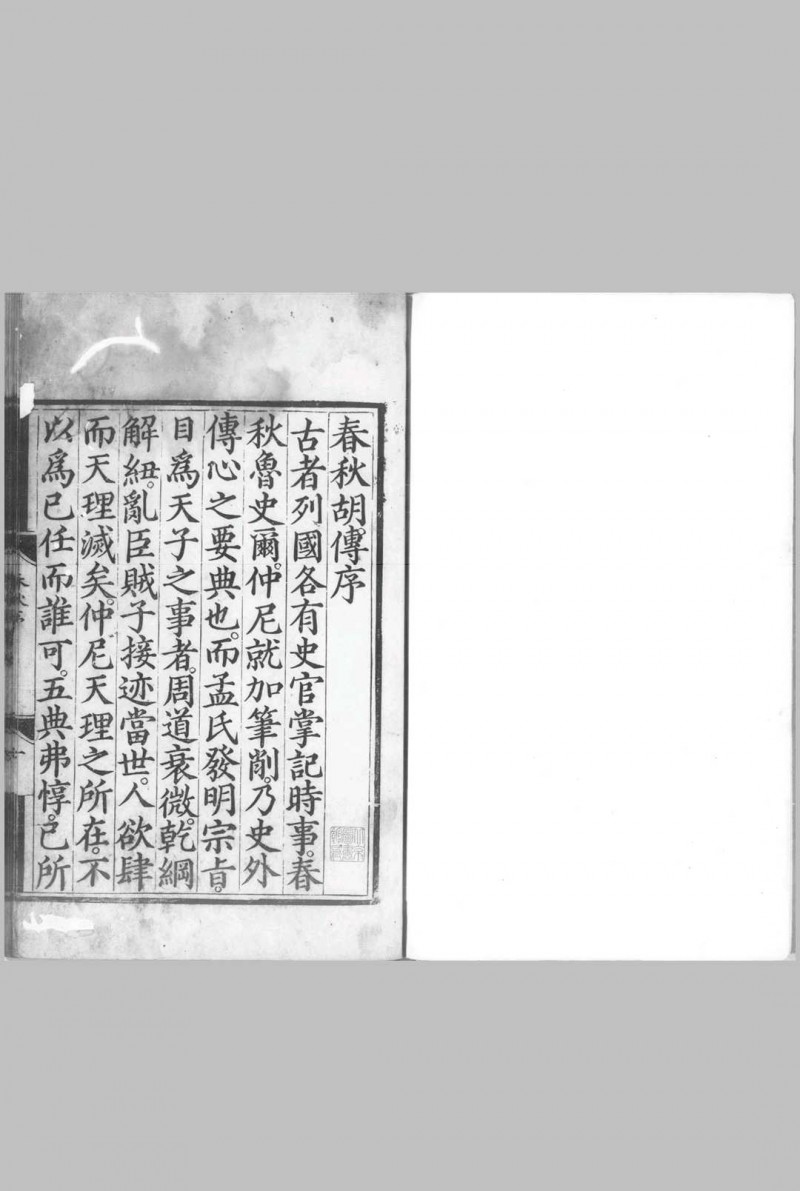 春秋胡傳序
古者列國各有史官掌記時事。春
秋魯史爾。仲尼就加筆削。乃史外
傳心之要典也。而孟氏發明宗旨。
目爲天子之事者。周道衰微。乾綱
解紐。亂臣賊子接迹當世。人欲肆
而天理滅矣。仲尼天理之所在。不
以爲已任而誰可。五典弗惇。已所
春秋序